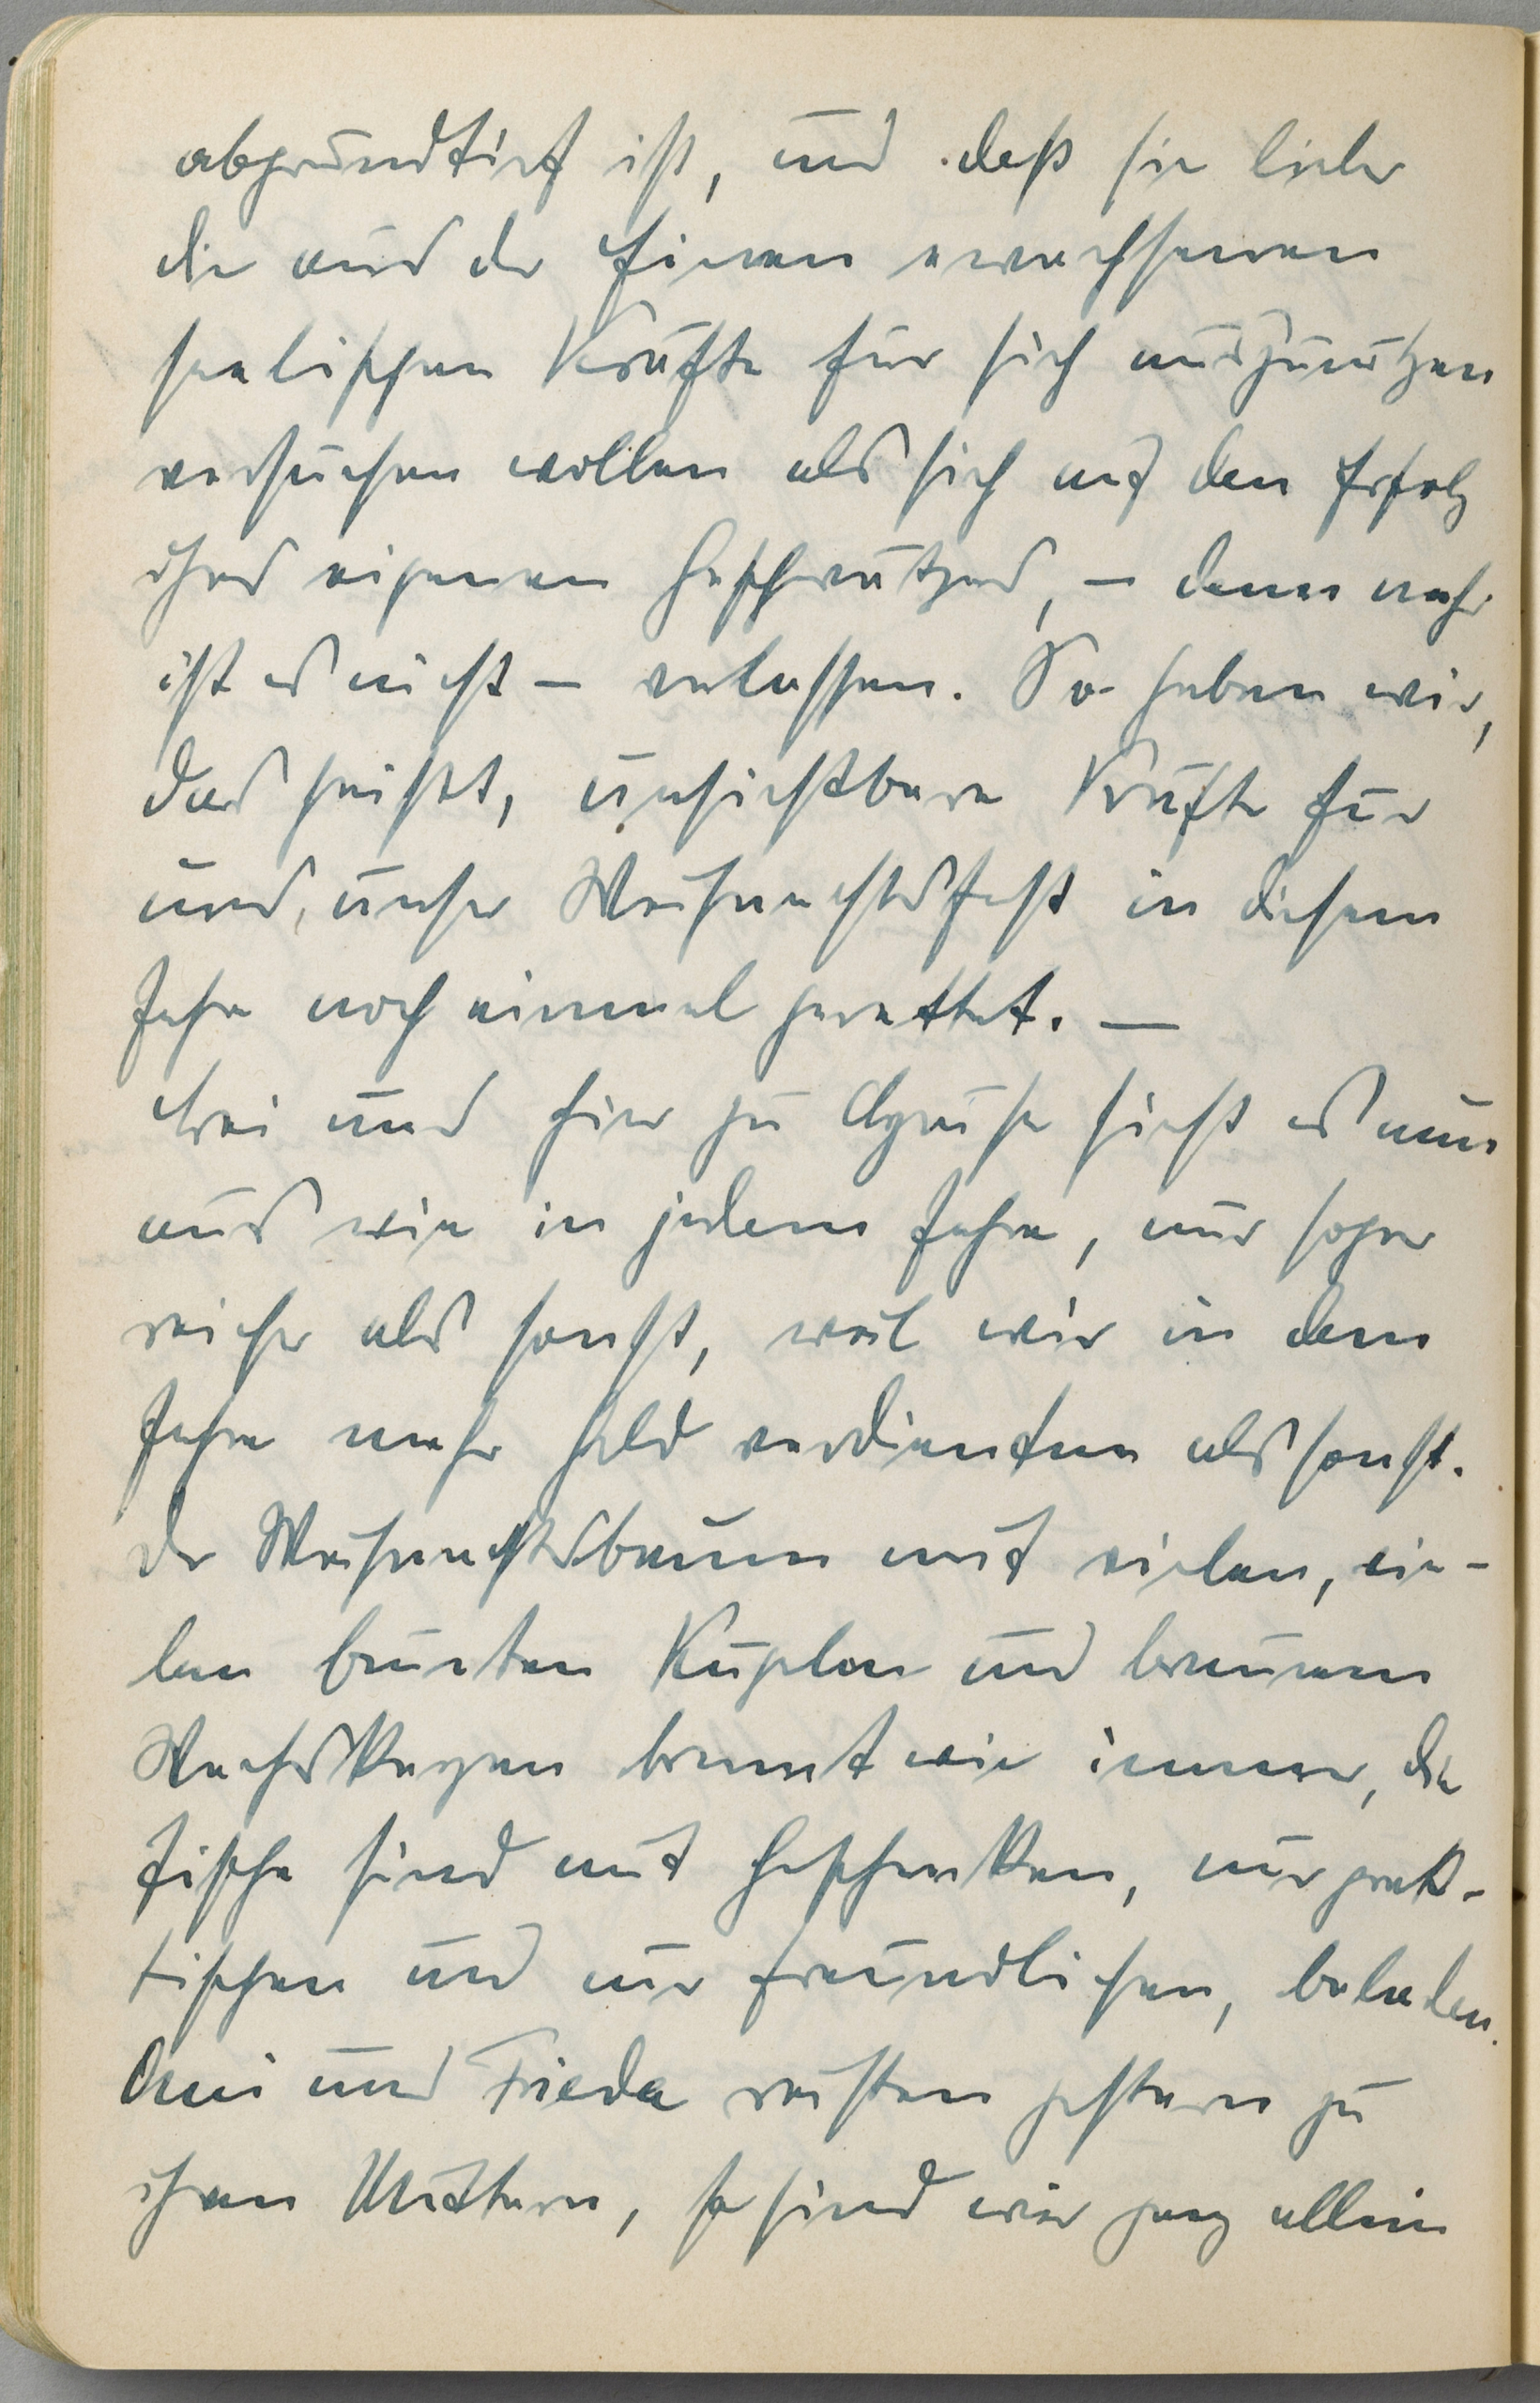 abgrundtief ist, und daß sie lieber
die aus der Feier erwachsenen
seelischen Kräfte für sich auszunutzen
versuchen wollen als sich auf den Erfolg
ihres eigenen Geschwätzes, – denn mehr
ist es nicht – verlassen. So haben wir,
das heißt, unsichtbare Kräfte für
uns, unser Weihnachtsfest in diesem
Jahre noch einmal gerettet. —
Bei uns hier zu Hause sieht es nun
aus wie in jedem Jahre, nur sogar
reicher als sonst, weil wir in dem
Jahre mehr Geld verdienten als sonst.
Der Weihnachtsbaum mit vielen, vie-
len bunten Kugeln und braunen
Wachskerzen brennt wie immer, die
Tische sind mit Geschenken, nur prak-
tischen und nur freundlichen, beladen.
und Frieda reisten gestern zu
ihren Müttern, so sind wir ganz allein